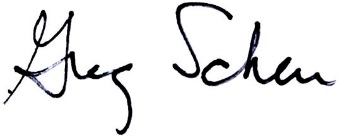 Greg Schen